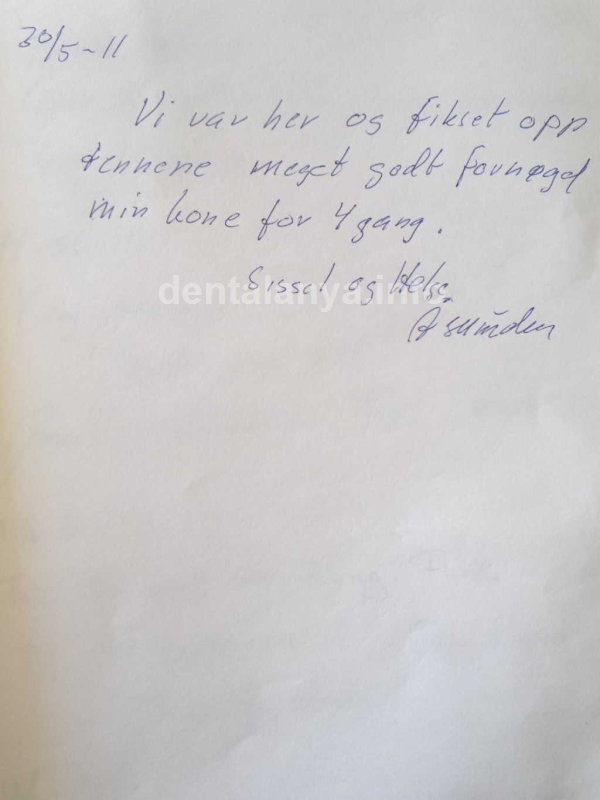 30/5-11
Vi var her og fikset opp
tennene meget godt fornøgd
min kone for 4 gang.
Sissel og Helge
dentalanya.info